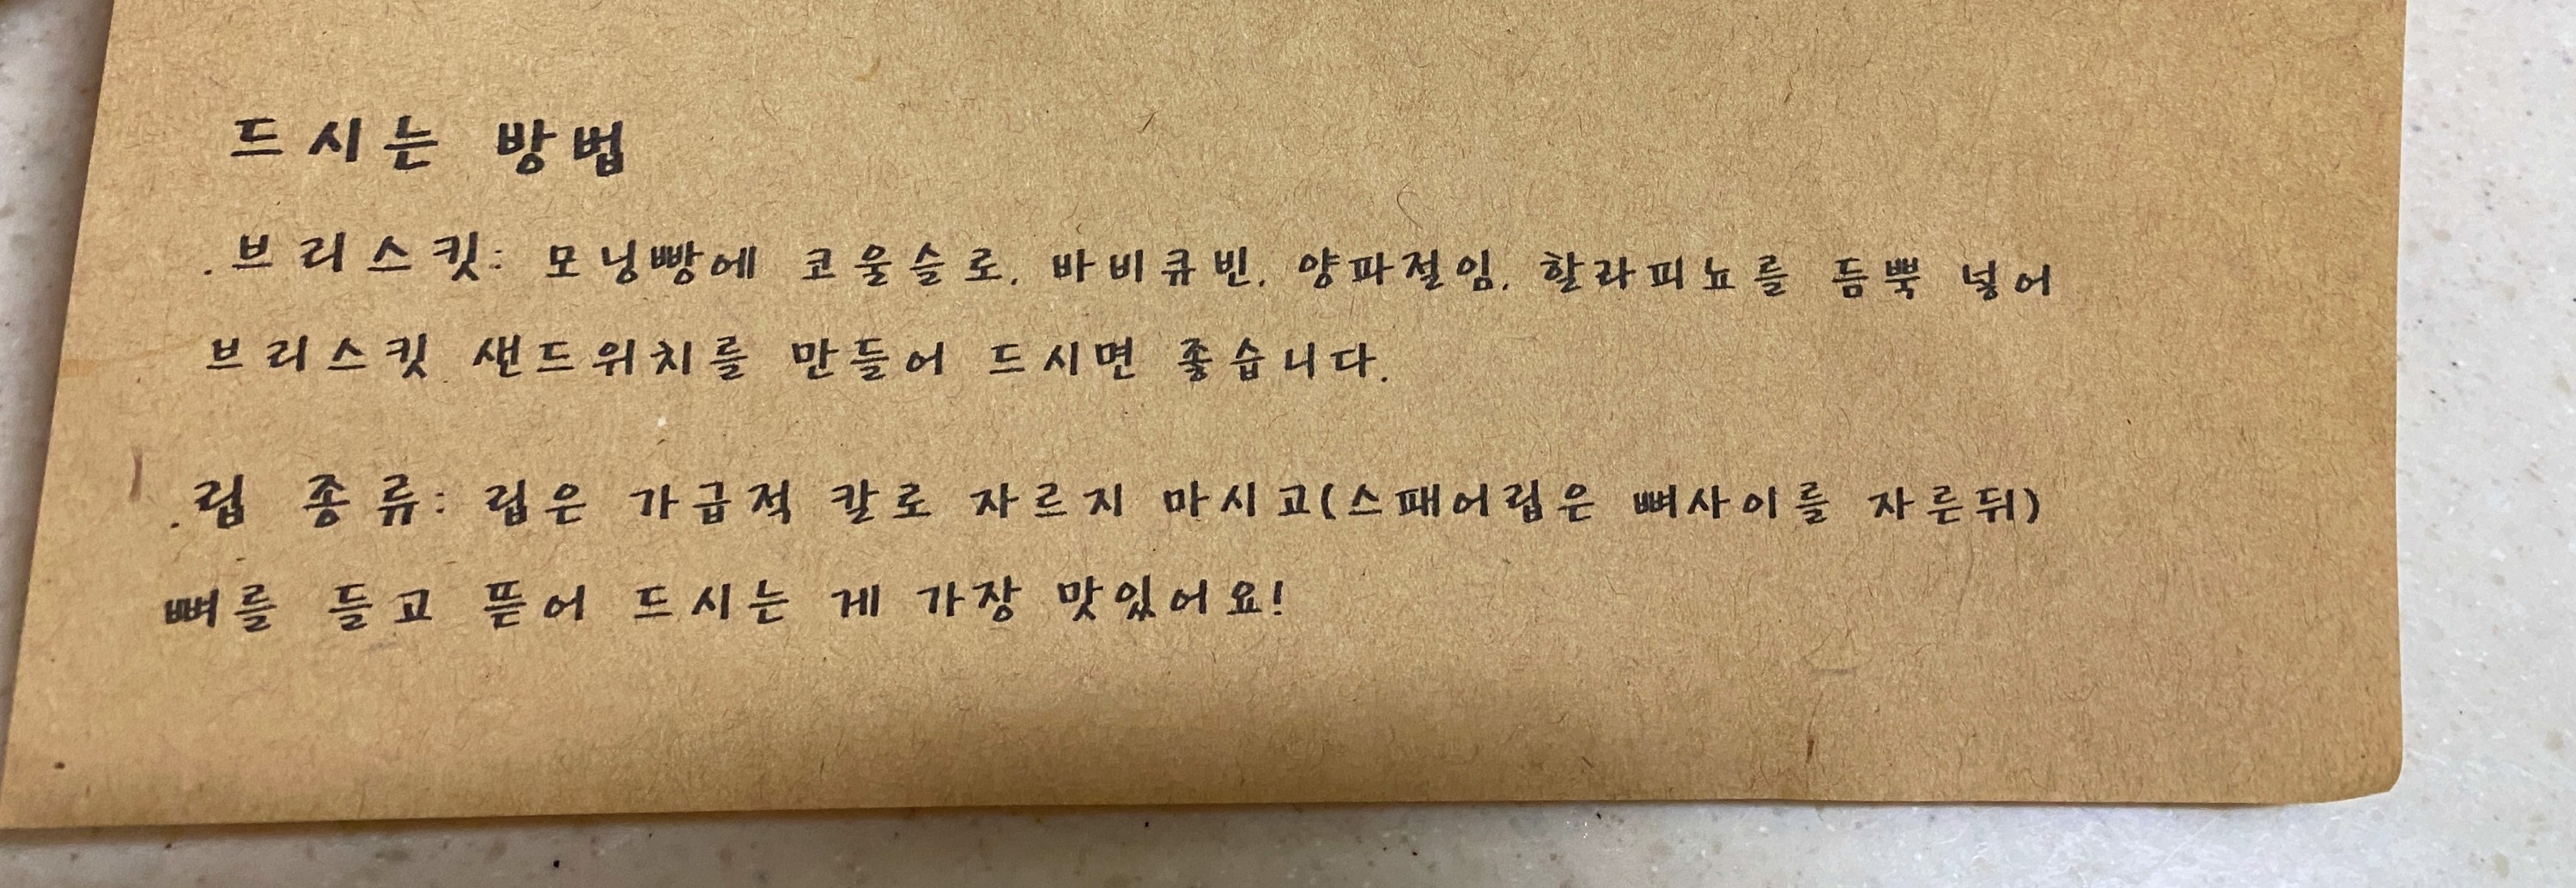 드시는 방법
.브리스킷: 모닝빵에 코울슬로, 바비큐빈, 양파절임, 할라피뇨를 듬뿍 넣어
브리스킷 샌드위치를 만들어 드시면 좋습니다.
.립 종류: 립은 가급적 칼로 자르지 마시고(스패어립은 뼈사이를 자른뒤)
뼈를 들고 뜯어 드시는 게 가장 맛있어요!